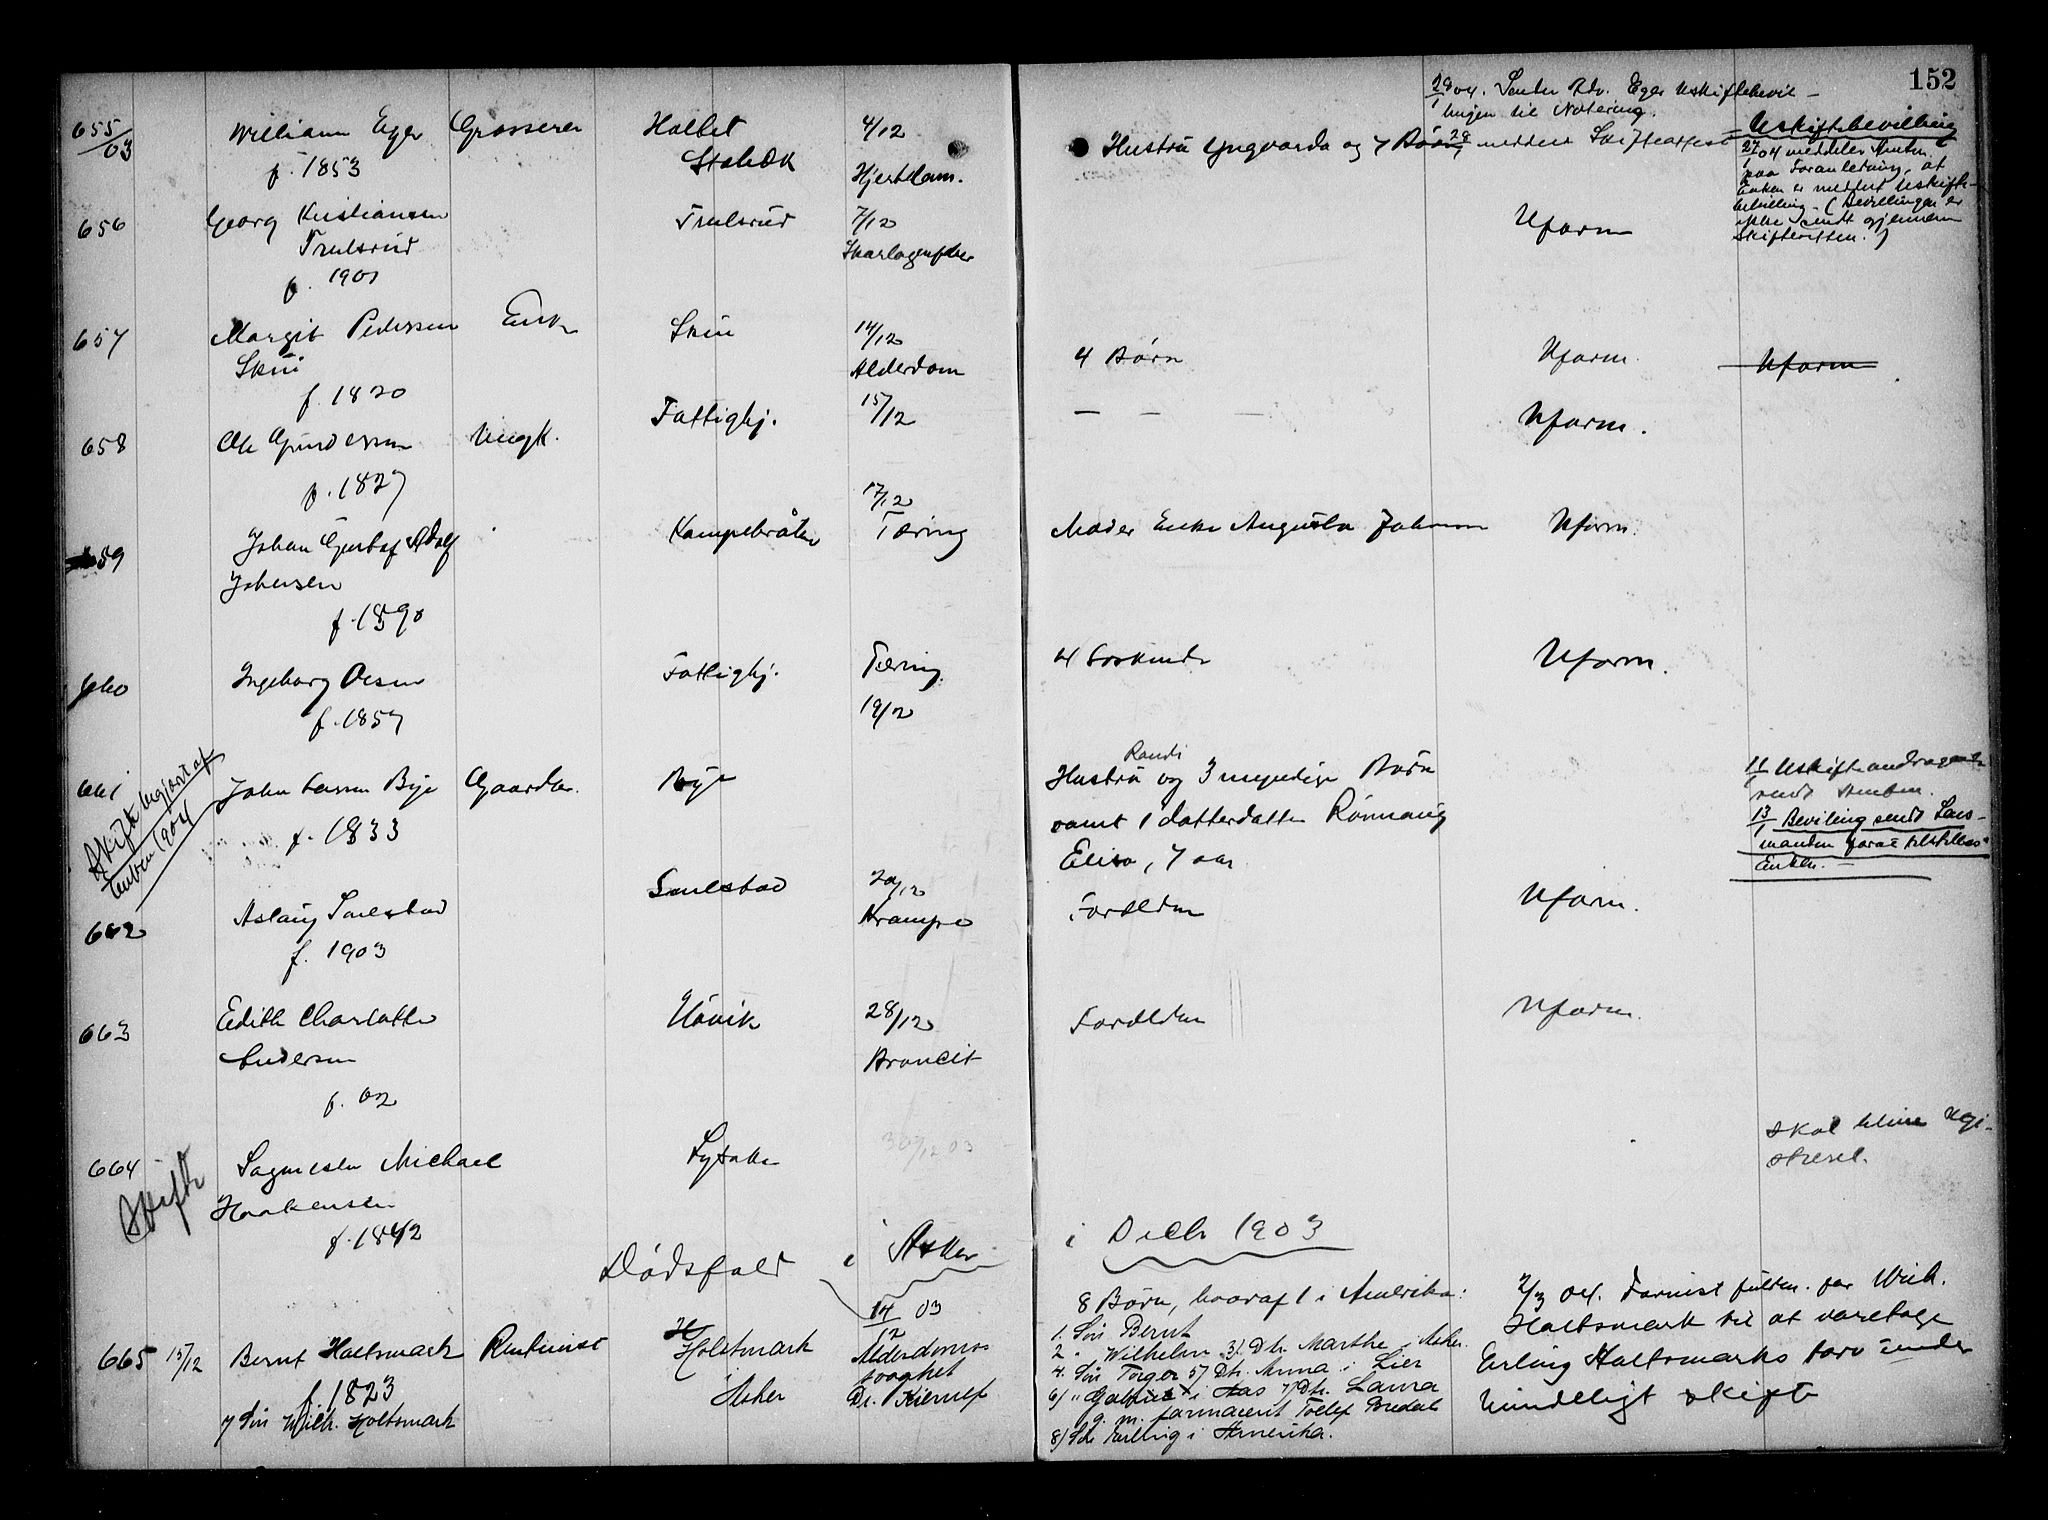 152
655/03
William Eger
f. 1853
Grosserer
Holtet
Stabæk
4/12
Hjertelam.
Hustru Yngvarda og 7 Børn 28/1 meddelt Skifteattest
28/1 04. Sender Adv. Eger Uskiftebevil-
lingen til Notering.
Uskiftebevilling
27/1 04 meddeler Amtm.
paa Foranledning, at
Enken er meddelt Uskifte-
bevilling. (Bevillingen er
ikke sendt gjennem
Skifteretten.)
656
Georg Kristiansen
Trulsrud
f. 1901
Trulsrud
7/12
Skarlagensfeber
Uform
657
Margit Pedersen
Skui
f. 1820
Enke
Skui
14/12
Alderdom
4 Børn
Uform.
Uform
658
Ole Gundersen
f. 1827
Ungk.
Fattighj.
15/12
— — —
Uform.
659
Johan Gustaf Adolf
Johansen
f. 1890
Kampebråten
17/12
Tæring
Moder Enke Augusta Johansen
Uform.
660
Ingeborg Olsen
f. 1857
Fattighj.
Tæring
19/12
4 Søskende
Uform.
661
Skifte begjært af
Enken 1904
John Larsen Bye
f. 1833
Gaardbr.
Bye
Randi
Hustru og 3 myndige Børn
samt 1 datterdatter Rønnaug
Elise, 7 aar
11/1 Uskifteandragende
sendt Amtm.
13/1 Beviling sendt Lens-
manden for at tilstilles
Enken.
662
Aslaug Smestad
f. 1903
Smestad
20/12
Krampe
Forældre
Uform.
663
Edith Charlotte
Andersen
f. 02
Høvik
28/12
Broncit
Forældre
Uform.
664
Skifte
Sagmester Michael
Haakensen
f. 1842
Lysaker
30/12 03
skal blive Regi-
streret.
Dødsfald i Asker
i Decbr 1903
665
15/12
Bernt Holtsmark
f. 1823
7 Søn Wilh. Holtsmark
Rentenist
Holtsmark
i
Asker
14/12 03
Alderdoms-
svaghet
Dr. Kierulf
8 Børn, hvoraf 1 i Amerika:
1. Søn Bernt
2. " Wilhelm 3) Dtr. Marthe i Asker.
4. Søn Torger 5) Dtr. Anna i Lier
6) " Gabriel i Aas 7) Dtr. Laura
g. m. farmaceut Tollef Bredal
8) Søn Erling i Amerika.
2/3 04. Fornist fuldm. for Wilh.
Holtsmark til at varetage
Erling Holtsmarks tarv under
mindeligt skifte